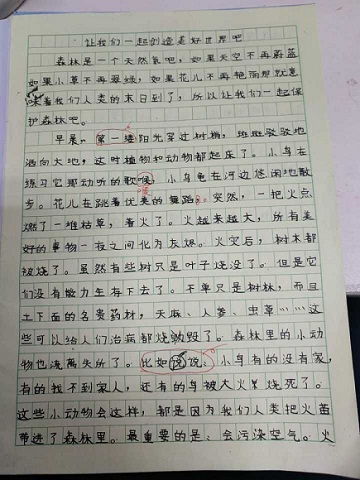 让我们一起创造美好世界吧
森林是一个天然氧吧，如果天空不再蔚蓝
如果小草不再翠绿，如果花儿不再艳丽那就意
味着我们人类的末日到了，所以让我们一起保
护森林吧。
早晨，第一缕阳光穿过树梢，斑斑驳驳地
洒向大地，这时植物和动物都起床了。小鸟在
练习它那动听的歌喉，小龟在河边悠闲地散
步。花儿在跳着优美的舞蹈。突然，一把火点
燃了一堆枯草，着火了。火越来越大，所有美
好的事物一夜之间化为灰烬。火灾后，树木都
被烧了。虽然有些树只是叶子烧没了。但是它
们没有能力生存下去了。不单只是树林，而且
土下面的名贵药材，天麻、人参、虫草……这
些可以给人们治病都烧毁了。森林里的小动
物也流离失所了。比如说说：小鸟有的没有家，
有的找不到家人，还有的鸟被大火烧死了。
这些小动物会这样，都是因为我们人类把火苗
带进了森林里。最重要的是：会污染空气。火